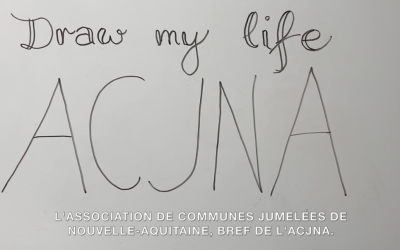 Draw my life
ACJNA
L'ASSOCIATION DE COMMUNES JUMELÉES DE
NOUVELLE-AQUITAINE, BREF DE L'ACJNA.